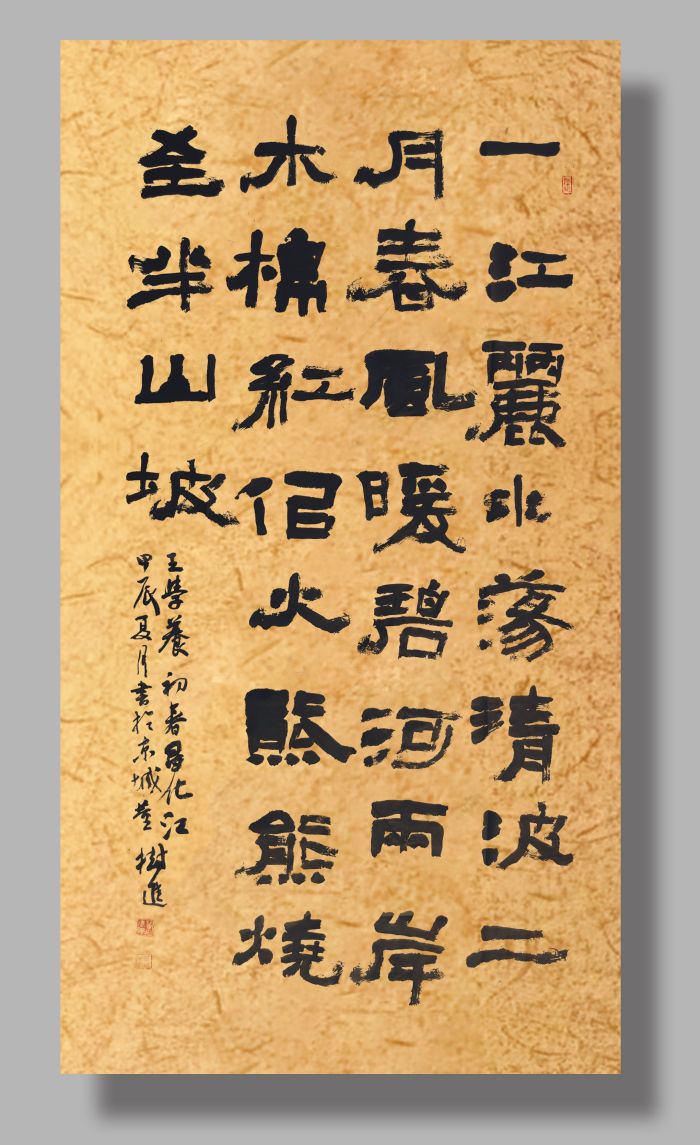 一江麗水蕩清波二
月春風暖碧河兩岸
木棉紅佀火熊熊燒
至半山坡
王學養 初春昌化江
甲辰夏月書於京城董樹進